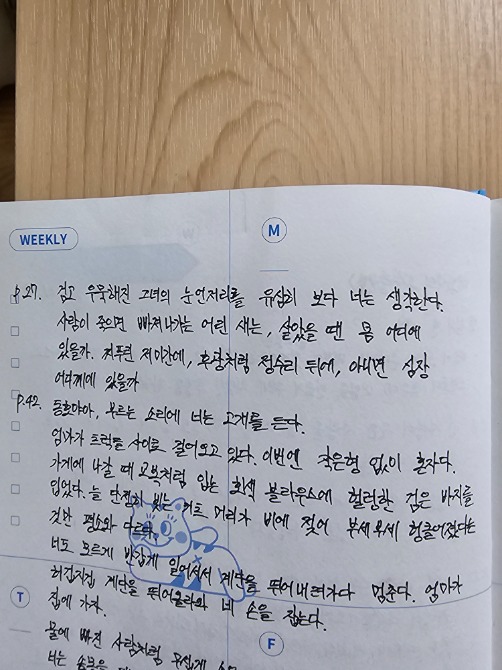 WEEKLY
M
p.27. 검고 우묵해진 그녀의 눈언저리를 유심히 보다 너는 생각한다.
사람이 죽으면 빠져나가는 어린 새는, 살았을 땐 몸 어디에
있을까. 찌푸린 저 미간에, 후광처럼 정수리 뒤에, 아니면 심장
어디께에 있을까
p.42. 동호야아, 부르는 소리에 너는 고개를 든다.
엄마가 트럭들 사이로 걸어오고 있다. 이번엔 작은형 없이 혼자다.
가게에 나갈 때 교복처럼 입는 회색 블라우스에 헐렁한 검은 바지를
입었다. 늘 단정히 빗는 커트 머리가 비에 젖어 부세부세 헝클어졌다는
것만 평소와 다르다.
너도 모르게 반갑게 일어서서 계단을 뛰어내려가다 멈춘다. 엄마가
허겁지겁 계단을 뛰어올라와 네 손을 잡는다.
T
집에 가자.
F
물에 빠진 사람처럼 무섭게
너는 손목을